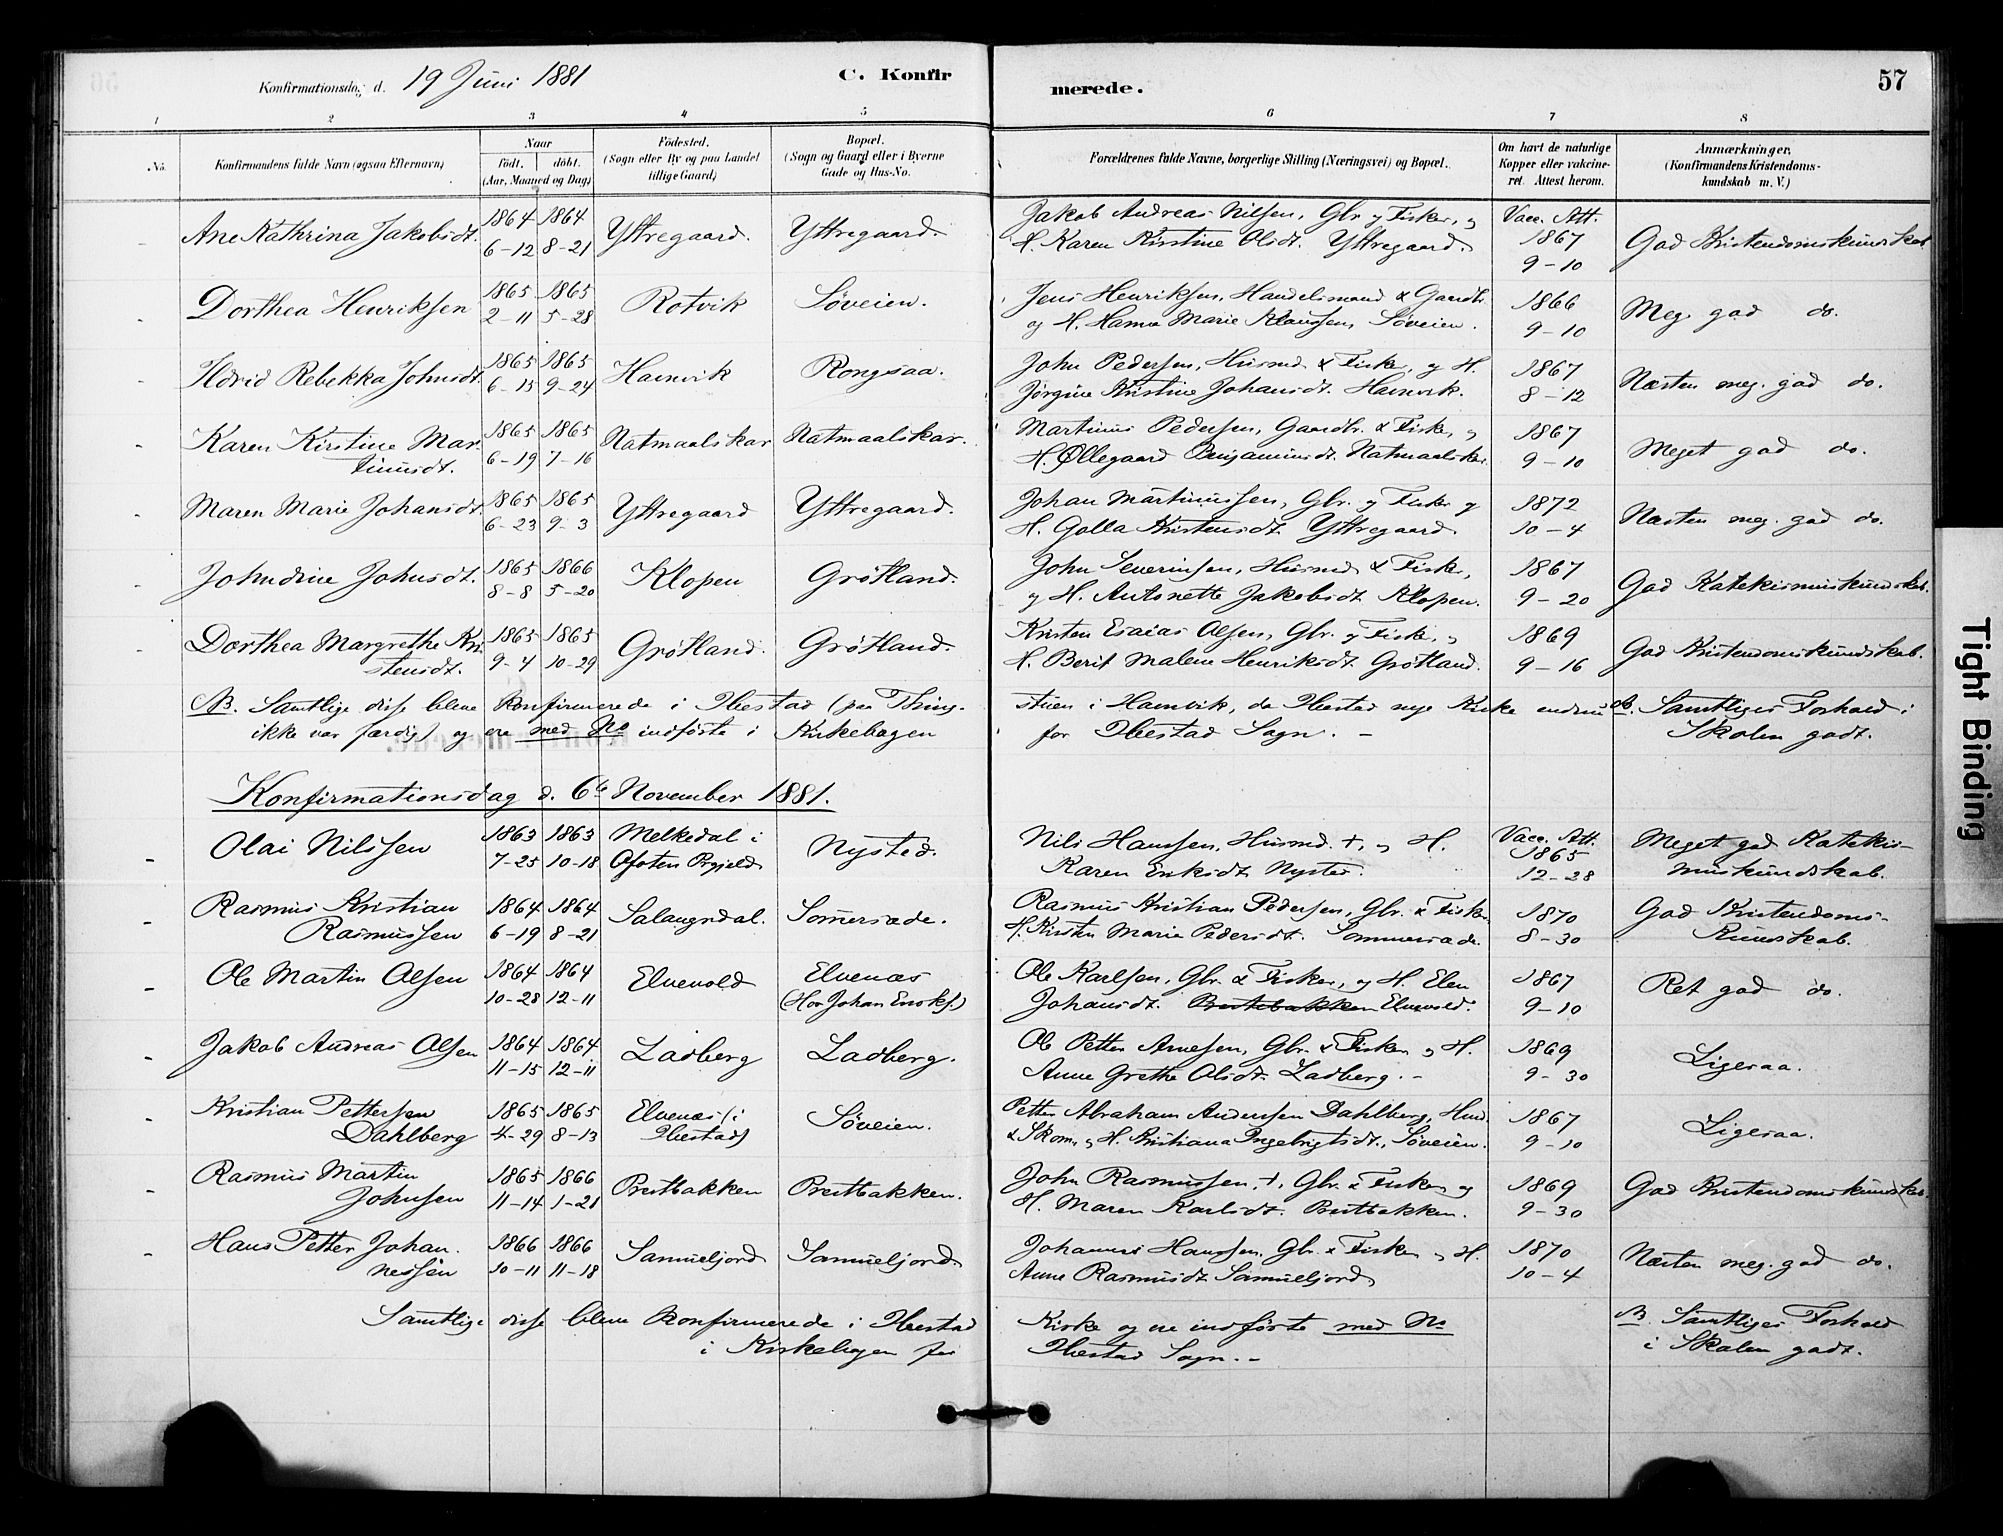 56
Konfirmationsdag d. 19 Juni 1881 C. Konfir merede. 57
1 2 3 4 5 6 7 8
No. Konfirmandens fulde Navn (ogsaa Efternavn) Naar født. døbt. (Aar, Maaned og Dag) Fødested. (Sogn eller By og paa Landet tillige Gaard) Bopæl. (Sogn og Gaard eller i Byerne Gade og Hus-No. Forældrenes fulde Navne, borgerlige Stilling (Næringsvei) og Bopæl. Om havt de naturlige Kopper eller vakcineret. Attest herom. Anmærkninger, (Konfirmandens Kristendomskundskab m. V.)
1864 1864 Jakob Andreas Nilsen, Gbr. og Fisker, og Vacc. Att.
- Ane Kathrina Jakobsdt. 6-12 8-21 Yttregaard. Yttregaard. H. Karen Kirstine Olsdt. Yttregaard. 1867 9-10 God Kristendomskundskab
1865 1865 Jens Henriksen, Handelsmand & Gaardb.
- Dorthea Henriksen 2-11 5-28 Rotvik Søveien. og H. Hanna Marie Klaussen, Søveien. 1866 9-10 Meg. god do.
1865 1865 John Pedersen, Husmd & Fisker, og H.
- Ildrid Rebekka Johnsdt. 6-15 9-24 Hamvik Rongsaa. Jørgine Kristine Johansdt. Hamvik. 1867 8-12 Næsten meg. god do.
- Karen Kirstine Mar- 1865 1865 Natmaalskar Natmaalskar. Martinus Pedersen, Gaardb. & Fisker, og 1867 Meget god do.
tinusdt. 6-19 7-16 H. Øllegaard Benjaminsdt. Natmaalskar. 9-10
1865 1865 Johan Martinussen, Gbr. og Fisker og 1872
- Maren Marie Johansdt. 6-23 9-3 Yttregaard Yttregaard. H. Golla Kristensdt. Yttregaard. 10-4 Næsten meg. god do.
1865 1866 John Severinsen, Husmd & Fisker, 1867
- Johndine Johnsdt. 8-8 5-20 Klopen Grøtland. og H. Antonette Jakobsdt. Klopen. 9-20 God Katekismuskundskab.
- Dorthea Margrethe Kri- 1865 1865 Grøtland. Grøtland. Kristen Esaias Olsen, Gbr. og Fisker, og 1869 God Kristendomskundskab.
stensdt. 9-4 10-29 H. Berit Malene Henriksdt. Grøtland. 9-16
NB. Samtlige disse bleve konfirmerede i Ibestad (paa Thing- stuen i Hamvik, da Ibestad nye Kirke endnu NB. Samtliges Forhold i
ikke var færdig) og ere med No indførte i Kirkebogen for Ibestad Sogn. - Skolen godt.
Konfirmationsdag d. 6te November 1881.
1863 1863 Melkedal i Nils Hanssen, Husmd. +, og H. Vacc. Att. Meget god Katekis-
- Olai Nilssen 7-25 10-18 Ofoten Prgjeld Nysted. Karen Eriksdt. Nysted. 1865 12-28 muskundskab.
Rasmus Kristian 1864 1864 Rasmus Kristian Pedersen, Gbr. & Fisker 1870 God Kristendoms-
- Rasmussen 6-19 8-21 Salangsdal. Somersæde. H. Kirsten Marie Pedersdt. Sommersæde. 8-30 kundskab.
- Ole Martin Olsen 1864 1864 Elvevold Elvenæs Ole Karlsen, Gbr. & Fisker, og H. Elen 1867 Ret god do.
10-28 12-11 (Hos Johan Enoks.) Johansdt. Prestebakken Elvevold. 9-10
- Jakob Andreas Olsen 1864 1864 Ladberg Ladberg. Ole Petter Arnesen, Gbr. & Fisker og H. 1869 Ligesaa.
11-15 12-11 Anne Grethe Olsdt. Ladberg. - 9-30
Kristian Pettersen 1865 1865 Elvenæs (i Petter Abraham Anderssen Dahlberg, Husmd. 1867
- Dahlberg 4-29 8-13 Ibestad) Søveien. & Skom. og H. Kristiana Ingebrigtsdt., Søveien. 9-10 Ligesaa.
Rasmus Martin 1865 1866 John Rasmussen, +, Gbr. & Fisker, og 1869
- Johnsen 11-14 1-21 Prestbakken Prestbakken. H. Maren Karlsdt. Prestbakken. 9-30 God Kristendomskundskab.
- Hans Petter Johan- 1866 1866 Samueljord Samueljord Johannes Hanssen, Gbr. & Fisker og H. 1870 Næsten meg. god do.
nessen 10-11 11-18 Anne Rasmusdt. Samueljord, 10-4
Samtlige disse bleve konfirmerede i Ibestad Kirke og ere indførte med No NB Samtliges Forhold
i Kirkebogen for Ibestad Sogn. - i Skolen godt.
Tight Binding